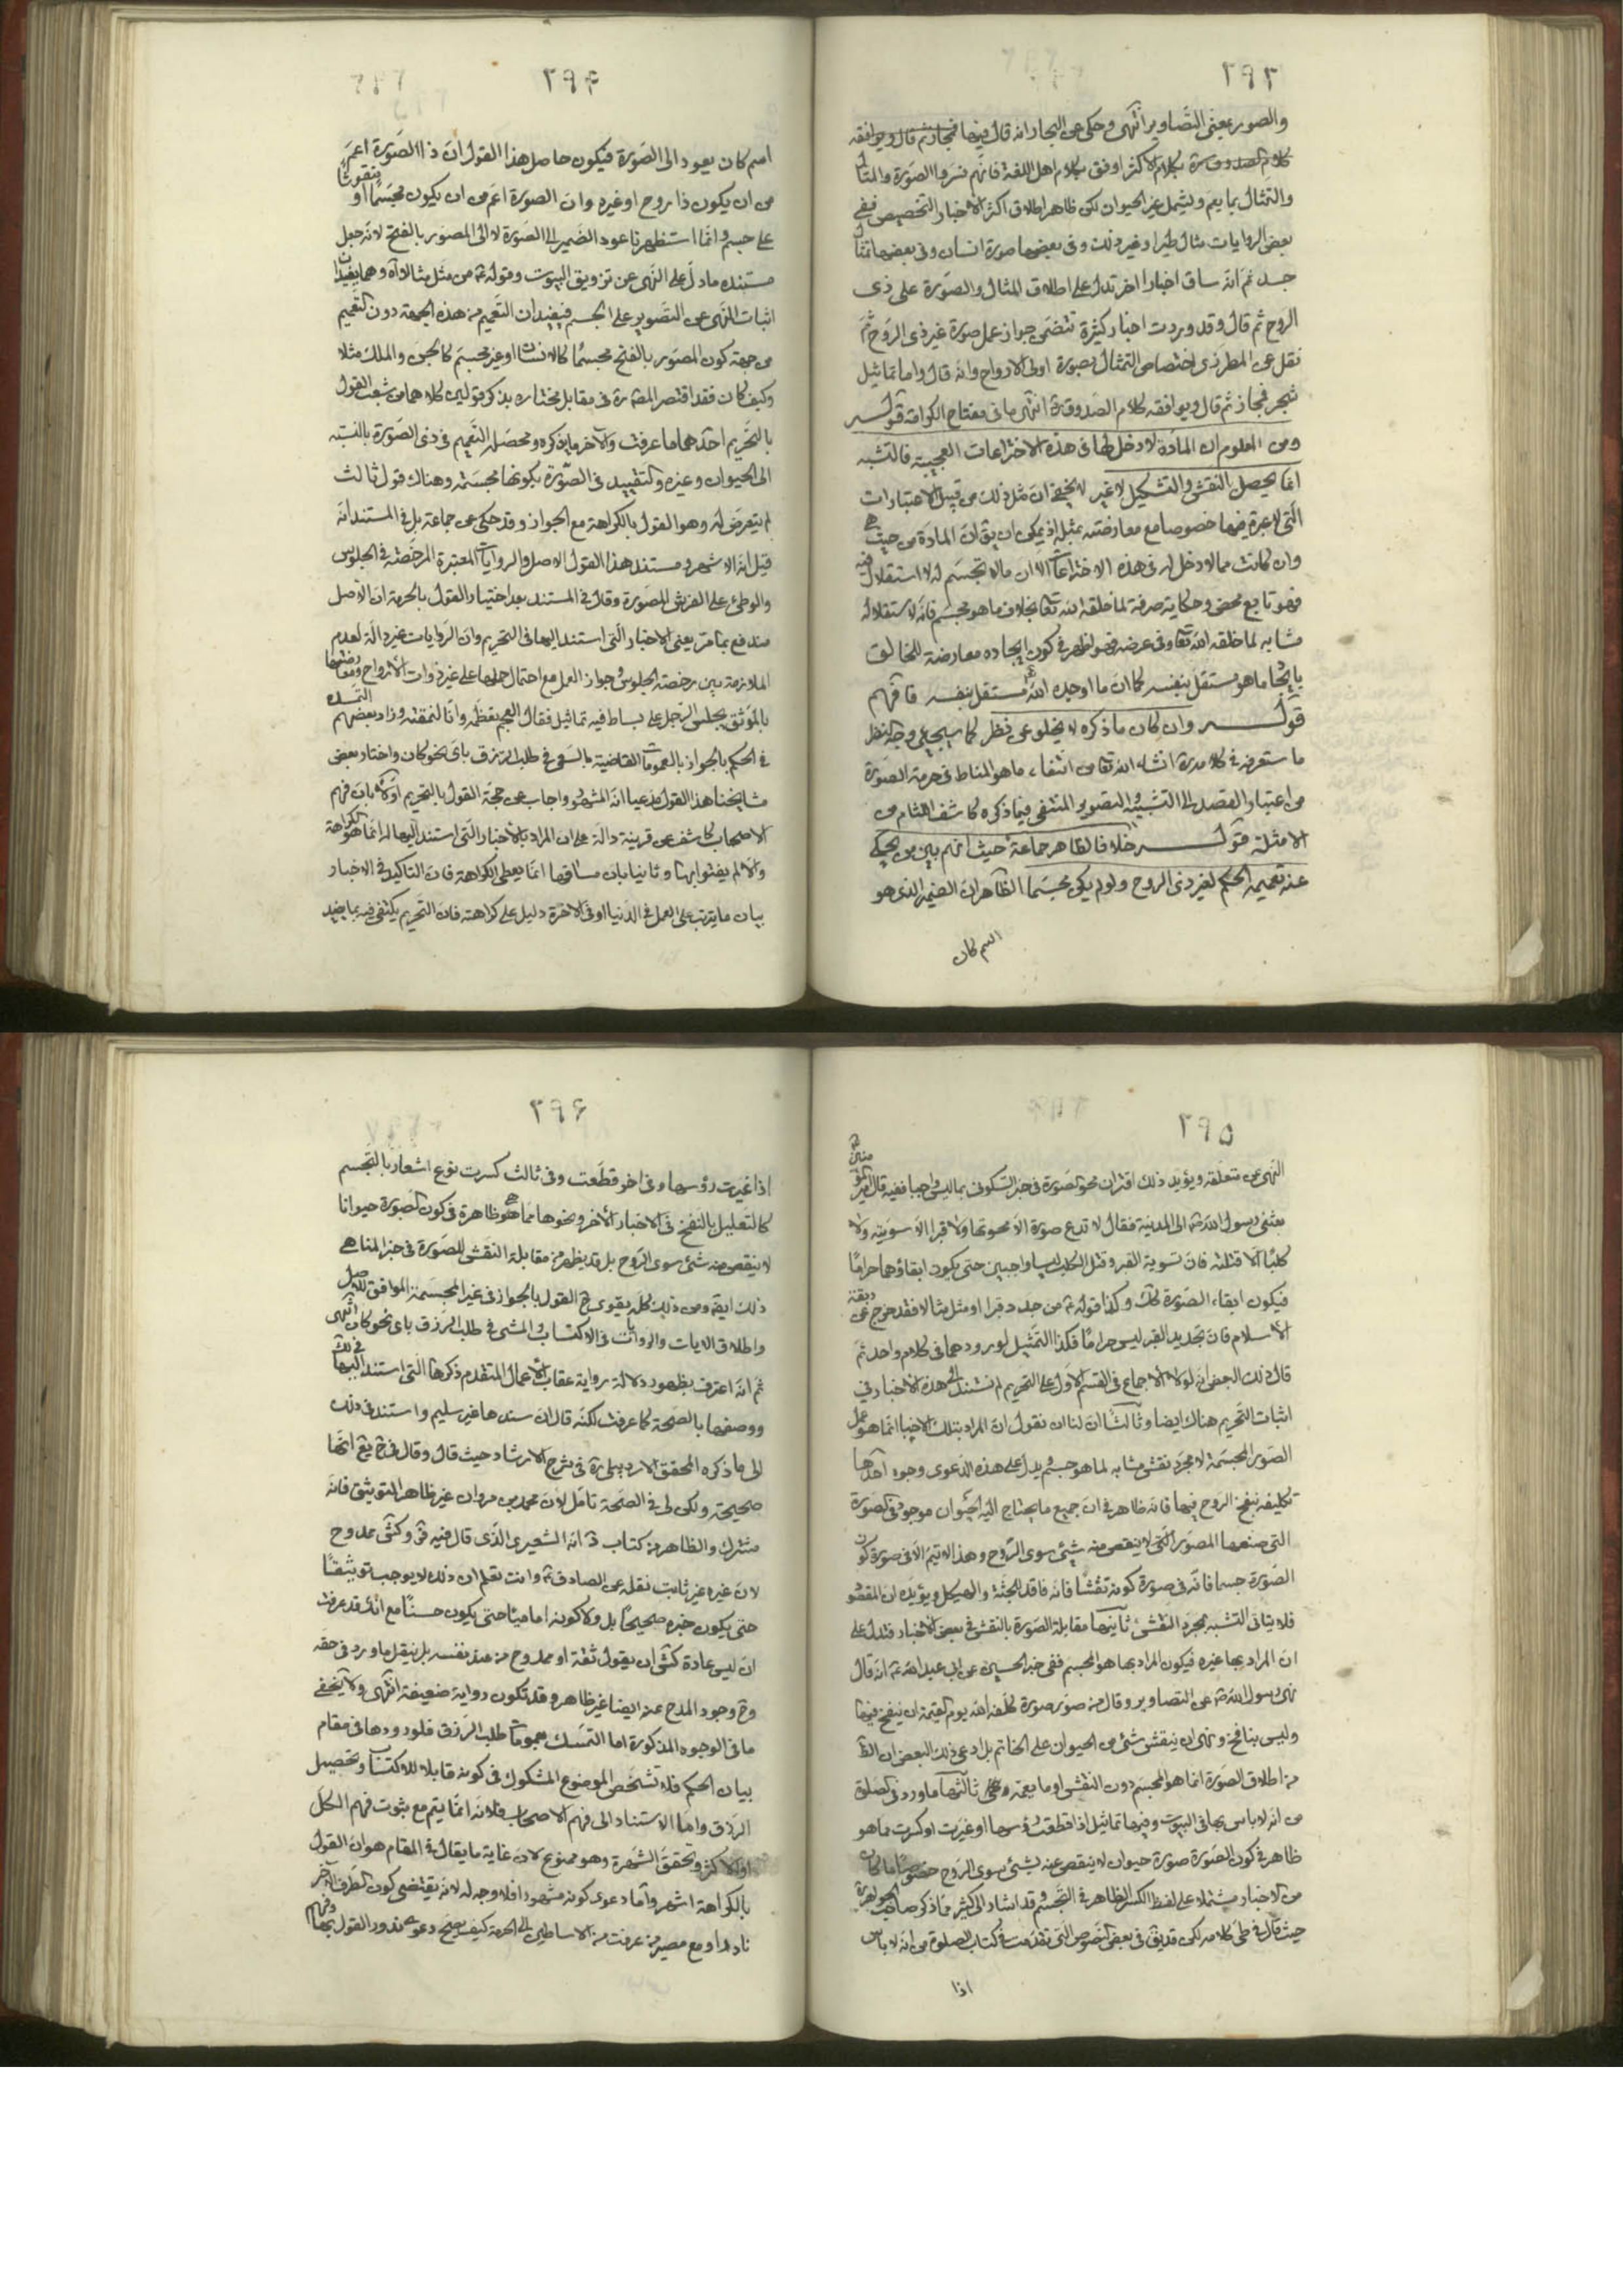 ٢٩٣
والصور بمعنى التصاوير انتهى وحكى عن البحار انه قال فيها فمجاز ثم قال ويوافقه
كلام الاكثر اوفق بكلام اهل اللغة فانهم فسروا الصورة والمثال
والتمثال بما يعم ويشمل غير الحيوان لكن ظاهر اطلاق اكثر الاخبار التخصيص ففي
بعض الروايات مثال طير او غير ذلك وفي بعضها صورة انسان وفي بعضها تمثال
جسد ثم انه ساق اخبارا اخر تدل على اطلاق المثال والصورة على ذى
الروح ثم قال وقد وردت اخبار كثيرة تتضمن جواز عمل صورة غير ذى الروح ثم
نقل عن المطرزى اختصاص التمثال بصورة اولى الارواح وانه قال واما تماثيل
شجر فمجاز ثم قال ويوافقه كلام الصدوق ره انتهى ما فى مفتاح الكرامة قوله
ومن المعلوم ان المادة لا دخل لها فى هذه الاختراعات العجيبة فالتشبه
انما يحصل بالنقش والتشكيل لا غير لا يخفى ان مثل ذلك من قبيل الاعتبارات
التى لا عبرة فيها خصوصا مع معارضته بمثله اذ يمكن ان يق ان المادة من حيث هى
وان كانت مما لا دخل له فى هذه الاختراعات الا ان ما لا تجسم له لا استقلال فيه
فهو تابع محض وحكاية صرفة لما خلقه الله تعا بخلاف ما هو مجسم فانه لاستقلاله
مشابه لما خلقه الله تعا وفى عرضه فهو اظهر فى كون ايجاده معارضة للخالق
بايجاد ما هو مستقل بنفسه كما ان ما اوجده الله تع مستقل بنفسه فافهم
قوله وان كان ما ذكره لا يخلو عن نظر كما سيجيئ وجه النظر
ما ستعرفه فى كلامه ره انشاء الله تعا من انتفاء ما هو المناط فى حرمة الصورة
من اعتبار القصد الى التشبيه والتصوير المنتفى فيما ذكره كاشف اللثام من
الامثلة قوله خلافا لظاهر جماعة حيث انهم بين من يحكى
عنه تعميمه الحكم لغير ذى الروح ولو لم يكن مجسما الظاهر ان الضمير الذى هو
اسم كان
٢٩۴
اسم كان يعود الى الصورة فيكون حاصل هذا القول ان ذا الصورة اعم
من ان يكون ذا روح او غيره وان الصورة اعم من ان يكون مجسما او منقوشا
على جسم وانما استظهرنا عود الضمير الى الصورة لا الى المصور بالفتح لانه جعل
مستنده ما دل على النهى عن تزويق البيوت وقوله ع من مثل مثالا آه وهما يفيدان
اثبات النهى عن التصوير على الجسم فيفيد ان التعميم من هذه الجهة دون التعميم
من جهة كون المصور بالفتح مجسما كالانسان او غير مجسم كالجن والملك مثلا
وكيف كان فقد اقتصر المص ره فى مقابل مختاره بذكر قولين كلاهما من شعب القول
بالتحريم احدهما ما عرفت والآخر ما يذكره ومحصله التعميم فى ذى الصورة بالنسبة
الى الحيوان وغيره والتقييد فى الصورة بكونها مجسمة وهناك قول ثالث
لم يتعرض له وهو القول بالكراهة مع الجواز وقد حكى عن جماعة بل فى المستند انه
قيل انه الاشهر ومستند هذا القول الاصل والروايات المعتبرة المرخصة فى الجلوس
والوطئ على الفرش المصورة وقال فى المستند بعد اختيار القول بالحرمة ان الاصل
مندفع بما مر يعنى الاخبار التى استند اليها فى التحريم وان الروايات غير دالة لعدم
الملازمة بين رخصة الجلوس وجواز العمل مع احتمال حملها على غير ذوات الارواح ومعارضتها
بالموثق يجلس الرجل على بساط فيه تماثيل فقال العجم يعظمه وانا لنمقته وزاد بعضهم التمسك
فى الحكم بالجواز بالعمومات القاضية بالسعى فى طلب الرزق باى نحو كان واختار بعض
مشايخنا هذا القول مدعيا انه المشهور واجاب عن حجة القول بالتحريم اولا بان فهم
الاصحاب كاشف عن قرينة دالة على ان المراد بالاخبار التى استند اليها له انما هو الكراهة
والا لم يفتوا بها وثانيا بان مساقها انما يعطى الكراهة فان التاكيد فى الاخبار
ببيان ما يترتب على العمل فى الدنيا او فى الاخرة دليل على كراهته فان التحريم يكتفى فيه بما يفيد
٢٩۵
النهى عن متعلقه ويؤيد ذلك اقتران محو الصورة فى خبر السكونى بما ليس واجبا ففيه قال امير المؤمنين ع
بعثنى رسول الله ص الى المدينة فقال لا تدع صورة الا محوتها ولا قبرا الا سويته ولا
كلبا الا قتلته فان تسوية القبر وقتل الكلب ليسا واجبين حتى يكون ابقاؤهما حراما
فيكون ابقاء الصورة كك وكذا قوله ع من جدد قبرا او مثل مثالا فقد خرج عن ربقة
الاسلام فان تجديد القبر ليس حراما فكذا التمثيل لورودهما فى كلام واحد ثم
قال ذلك البعض انه لولا الاجماع فى القسم الاول على التحريم لم نستند الى هذه الاخبار فى
اثبات التحريم هناك ايضا وثالثا ان لنا ان نقول ان المراد بتلك الاخبار انما هو عمل
الصور المجسمة لا مجرد نقش مشابه لما هو جسم ويدل على هذه الدعوى وجوه احدها
تكليفه بنفخ الروح فيها فانه ظاهر فى ان جميع ما يحتاج اليه الحيوان موجود فى الصورة
التى صنعها المصور التى لا ينقص منه شيئ سوى الروح وهذا لا يتم الا فى صورة كون
الصورة جسما فانه فى صورة كونه نقشا فانه فاقد للجثة والهيكل ويؤيده ان المقصود
فلا يتاتى التشبه بمجرد النقش ثانيها مقابلة الصورة بالنقش فى بعض الاخبار فتدل على
ان المراد بها غيره فيكون المراد بها هو المجسم ففى خبر الحسين عن ابى عبد الله ع انه قال
نهى رسول الله ص عن التصاوير وقال من صور صورة كلفه الله يوم القيمة ان ينفخ فيها
وليس بنافخ ونهى ان ينقش شئ من الحيوان على الخاتم بل ادعى ذلك البعض ان الظ
من اطلاق الصورة انما هو المجسم دون النقش او ما يعمه ثالثها ما ورد فى الصلوة
من انه لا باس بها فى البيوت وفيها تماثيل اذا قطعت رؤسها او غيرت او كسرت مما هو
ظاهر فى كون الصورة صورة حيوان لا ينقص عنه بشئ سوى الروح خصوصا ما كان
من الاخبار مشتملا على لفظ الكسر الظاهر فى التجسم وقد اشار الى كثير مما ذكر صاحب الجواهر ره
حيث قال فى طى كلامه لكن قد يق فى بعض النصوص التى تقدمت فى كتاب الصلوة من انه لا باس
اذا
٢٩۶
اذا غيرت رؤسها وفى اخر قطعت وفى ثالث كسرت نوع اشعار بالتجسم
كالتعليل بالنفخ فى الاخبار الأخر ونحوها مما هى ظاهرة فى كون الصورة حيوانا
لا ينقص منه شئ سوى الروح بل قد يظهر من مقابلة النقش للصورة فى خبر المناهى
ذلك ايضا ومن ذلك كله يقوى ح القول بالجواز فى غير المجسمة الموافق للاصل
واطلاق الايات والروايات فى الاكتساب والمشى فى طلب الرزق باى نحو كان انتهى
ثم انه اعترف بظهور دلالة رواية عقاب الاعمال المتقدم ذكرها التى استند اليها فى ذلك
ووصفها بالصحة كما عرفت لكنه قال ان سندها غير سليم واستند فى ذلك
الى ما ذكره المحقق الاردبيلى ره فى شرح الارشاد حيث قال وقال فى ح يع انها
صحيحة ولكن لى فى الصحة تامل لان محمد بن مروان غير ظاهر التوثيق فانه
مشترك والظاهر من كتاب انه الشعيرى الذى قال فيه ق وكش ممدوح
لان غيره غير ثابت نقله عن الصادق ع وانت تعلم ان ذلك لا يوجب توثيقا
حتى يكون خبره صحيحا بل ولا كونه اماميا حتى يكون حسنا مع انك قد عرفت
ان ليس عادة كش ان يقول ثقة او ممدوح من عند نفسه بل ينقل ما ورد فى حقه
وح وجود المدح عنه ايضا غير ظاهر وقد تكون رواية ضعيفة انتهى ولا يخفى
ما فى الوجوه المذكورة اما التمسك بعمومات طلب الرزق فلورودها فى مقام
بيان الحكم فلا تشخص الموضوع المشكوك فى كونه قابلا للاكتساب وتحصيل
الرزق واما الاستناد الى فهم الاصحاب فلانه انما يتم مع ثبوت فهم الكل
او الاكثر وتحقق الشهرة وهو ممنوع لان غاية ما يقال فى المقام هو ان القول
بالكراهة اشهر واما دعوى كونه مشهورا فلا وجه له لانه يقتضى كون الطرف الآخر
نادرا ومع مصير من عرفت من الاساطين الى الحرمة كيف يصح دعوى ندور القول بها وفهم